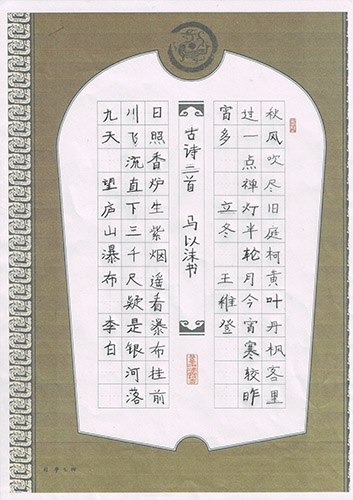 秋风吹尽旧庭柯黄叶丹枫客里
过一点禅灯半轮月今宵寒较昨
宵多 立冬 王稚登
古诗二首 马以沫书
日照香炉生紫烟遥看瀑布挂前
川飞流直下三千尺疑是银河落
九天 望庐山瀑布 李白